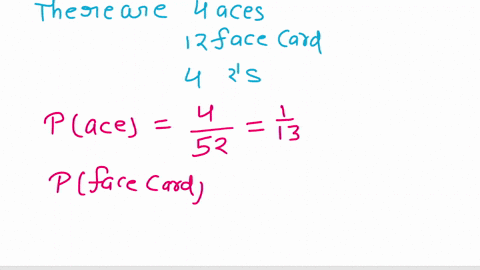 There are 4 aces
12 face Card
4 2's
P(ace) = 4/52 = 1/13
P(face Card)